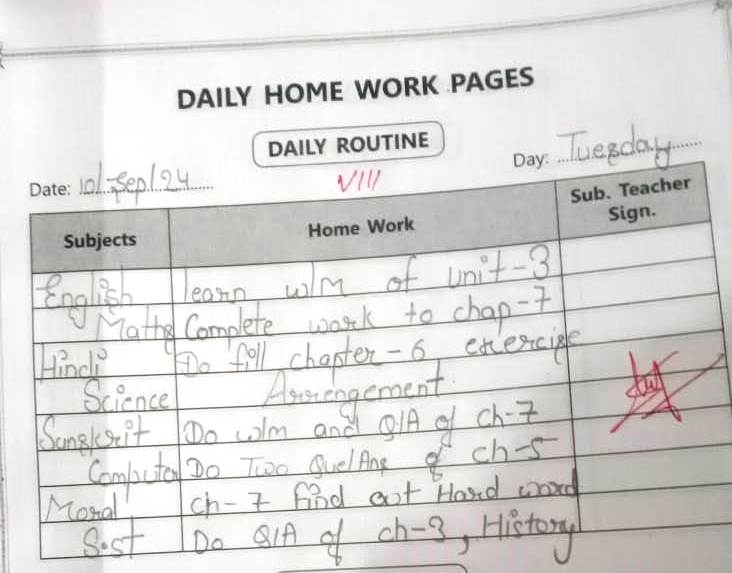 DAILY HOME WORK PAGES
DAILY ROUTINE
Date: 10/Sep/24 Day: Tuesday
VIII
Subjects Home Work Sub. Teacher Sign.
English learn w/m of unit-3
Maths Complete work to chap-7
Hindi Do fill chapter-6 exercise
Science Arrengement
Sanskrit Do w/m and Q/A of ch-7
Computer Do Two Que/Ans of ch-5
Moral ch-7 find out Hard word
S.st Do Q/A of ch-3, History